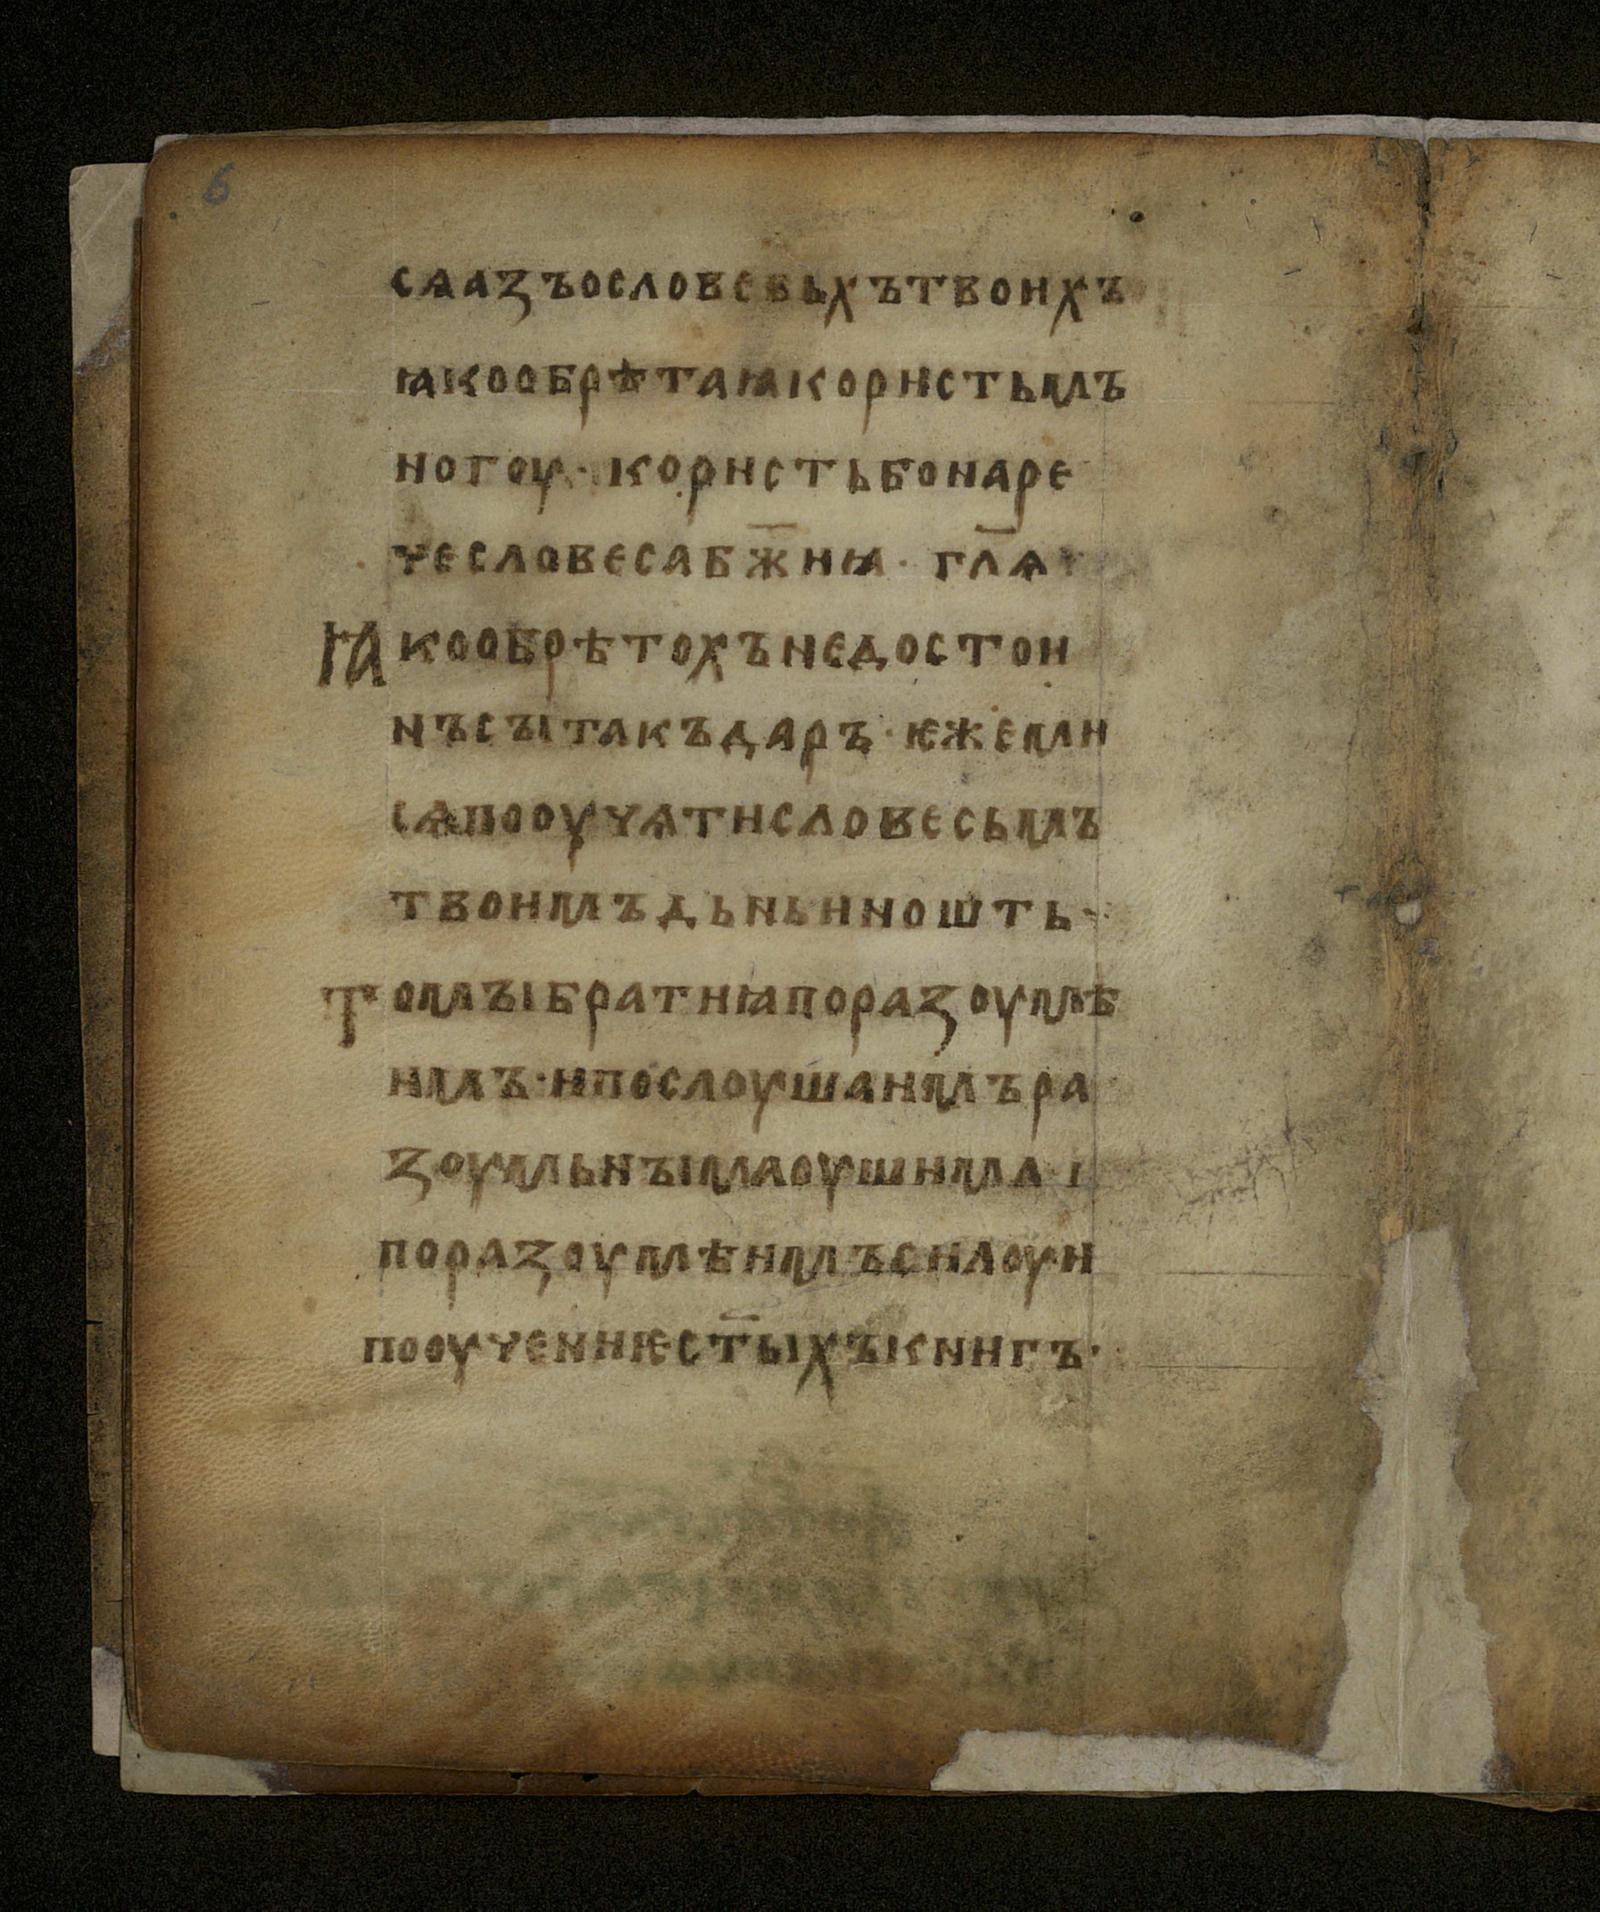 6
сѧазъословесьхътвоихъ
ꙗкообрѣтаꙗкористьмъ
ногоу · користьбонаре
чесловесабж҃иꙗ · гл҃ѧ
Ꙗкообрѣтохънедостои
нъсꙑтакъдаръ · ѥжеми
сѧпооучѧтисловесьмъ
твоимъдьньиношть ·
Томꙑбратиꙗпоразоумѣ
имъ · ипослоушаимъра
зоумьнꙑмаоушима ı
поразоумѣимъсилоуи
пооучениѥст҃ыхъкнигъ ·